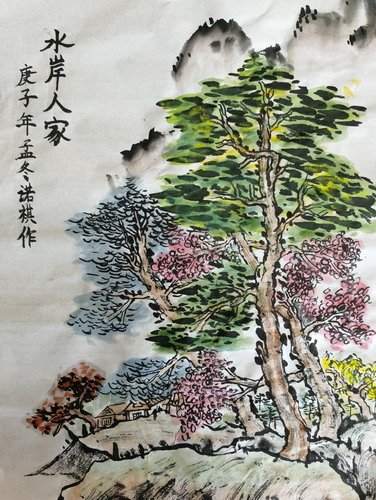 水岸人家
庚子年孟冬诺棋作